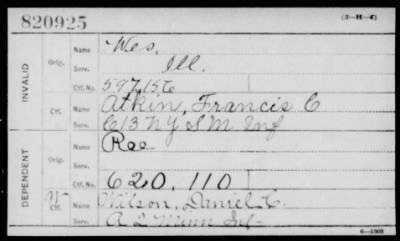 820925
(3-H-4)
INVALID
Orig.
Name Wes,
Serv. Ill.
Ctf. No. 597,156
Ctf.
Name Atkin, Francis C
Serv. C 13 N Y S M Inf
DEPENDENT
Orig.
Name Roe
Serv.
Ctf. No. 620,110
W
Ctf.
Name Wilson, Daniel C.
Serv. A 2 Minn Inf
6—1808